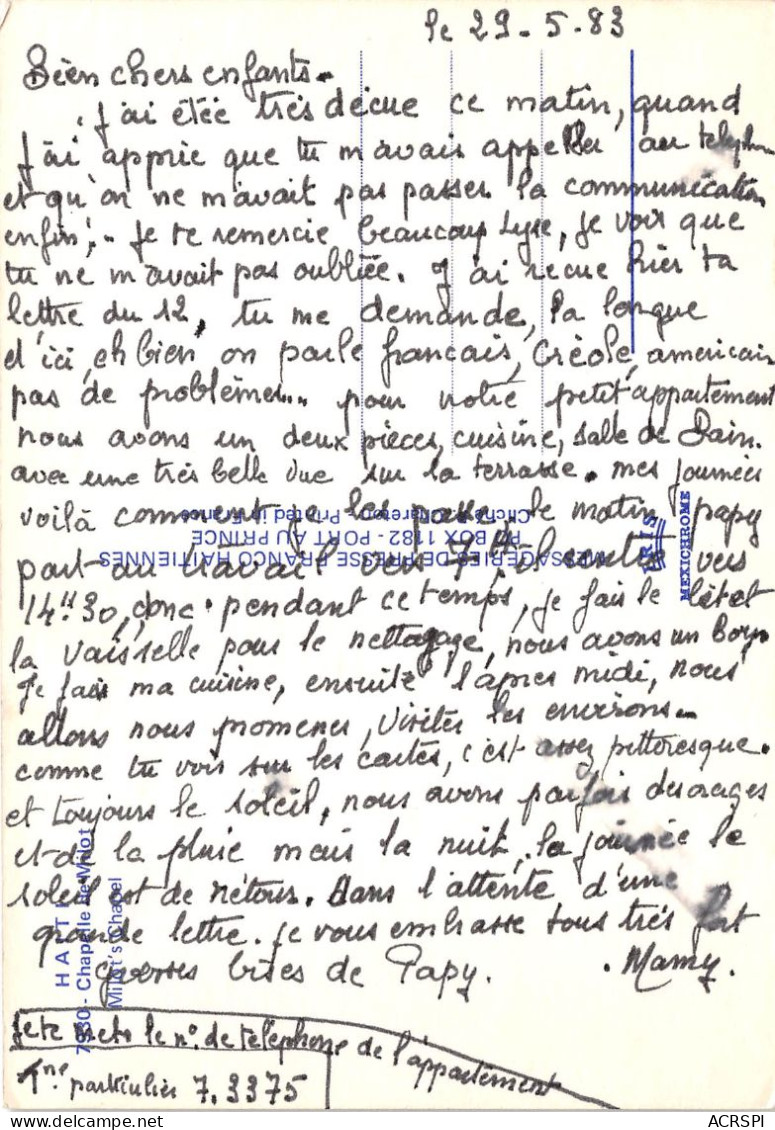 le 29-5-83
Bien chers enfants.
J'ai étée très décue ce matin, quand
j'ai apprie que tu m'avais appeller au teleph
et qu'on ne m'avait pas passer la communication
enfin... Je te remercie beaucoup Lyse, je voir que
tu ne m'avait pas oubliée. J'ai recue hier ta
lettre du 12, tu me demande, la longue
d'ici, eh bien on parle francais, Créole, americain
pas de problème... pour notre petit appartement
nous avons un deux pièces, cuisine, salle de Bain.
avec une très belle vue sur la terrasse. mes journées
voilà comment je les passe le matin papy
part au travail vers 7H il rentre vers
14H30, donc pendant ce temps, je fais le lit et
la vaisselle pour le nettagage, nous avons un boy
je fais ma cuisine, ensuite l'après midi, nous
allons nous promener, visiter les environs.
comme tu voir sur les cartes, c'est assez pittoresque.
et toujours le soleil, nous avons parfois des orages
et de la pluie mais la nuit, la journée le
soleil est de retour. Dans l'attente d'une
grande lettre. je vous embrasse tous très fort
grosses bises de Papy. Mamy.
je te mets le n° de telephone de l'appartement
particulier 7.3375
MESSAGERIES DE PRESSE FRANCO HAITIENNES
PO BOX 1182 - PORT AU PRINCE
Cliché A. Chareton Printed in France
IRIS
MEXICHROME
HAITI
7930 - Chapelle de Milot
Milot's Chapel
ACRSPI